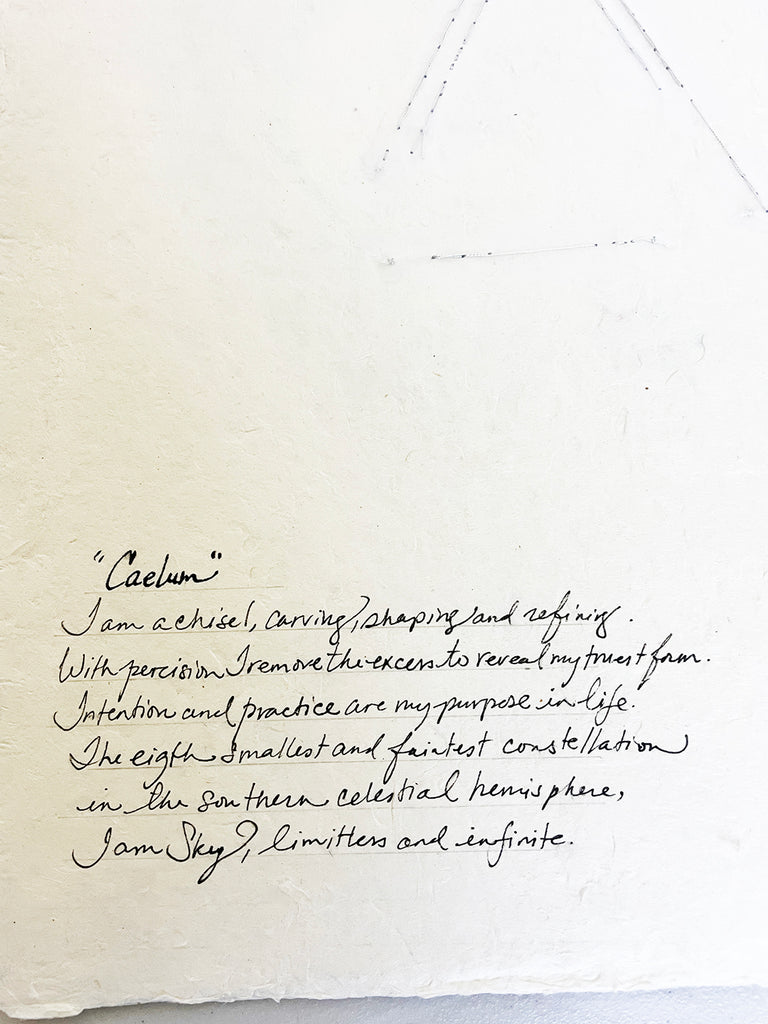 "Caelum"
I am a chisel, carving, shaping and refining.
With percision I remove the excess to reveal my truest form.
Intention and practice are my purpose in life.
The eigth smallest and faintest constellation
in the southern celestial hemisphere,
I am Sky, limitless and infinite.